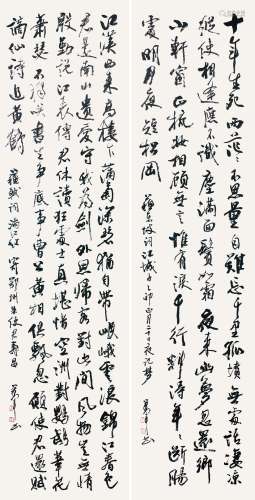 十年生死两茫茫不思量自難忘千里孤墳無處話淒涼
縱使相逢應不識塵滿面鬢如霜夜來幽夢忽還鄉
小軒窗正梳妝相顧無言惟有淚千行料得年年斷腸
處明月夜短松岡 蘇東坡詞江城子乙卯正月二十日夜記夢
江漢西來高樓下葡萄深碧猶自帶岷峨雪浪錦江春色
君是南山遺愛守我為劍外思歸客對此間風物豈無情
殷勤說江表傳君休讀狂處士真堪惜空洲對鸚鵡葦花
蕭瑟不獨笑書生爭底事曹公黃祖俱飄忽願使君還賦
謫仙詩追黃鶴 蘇軾詞滿江紅寄鄂州朱使君壽昌